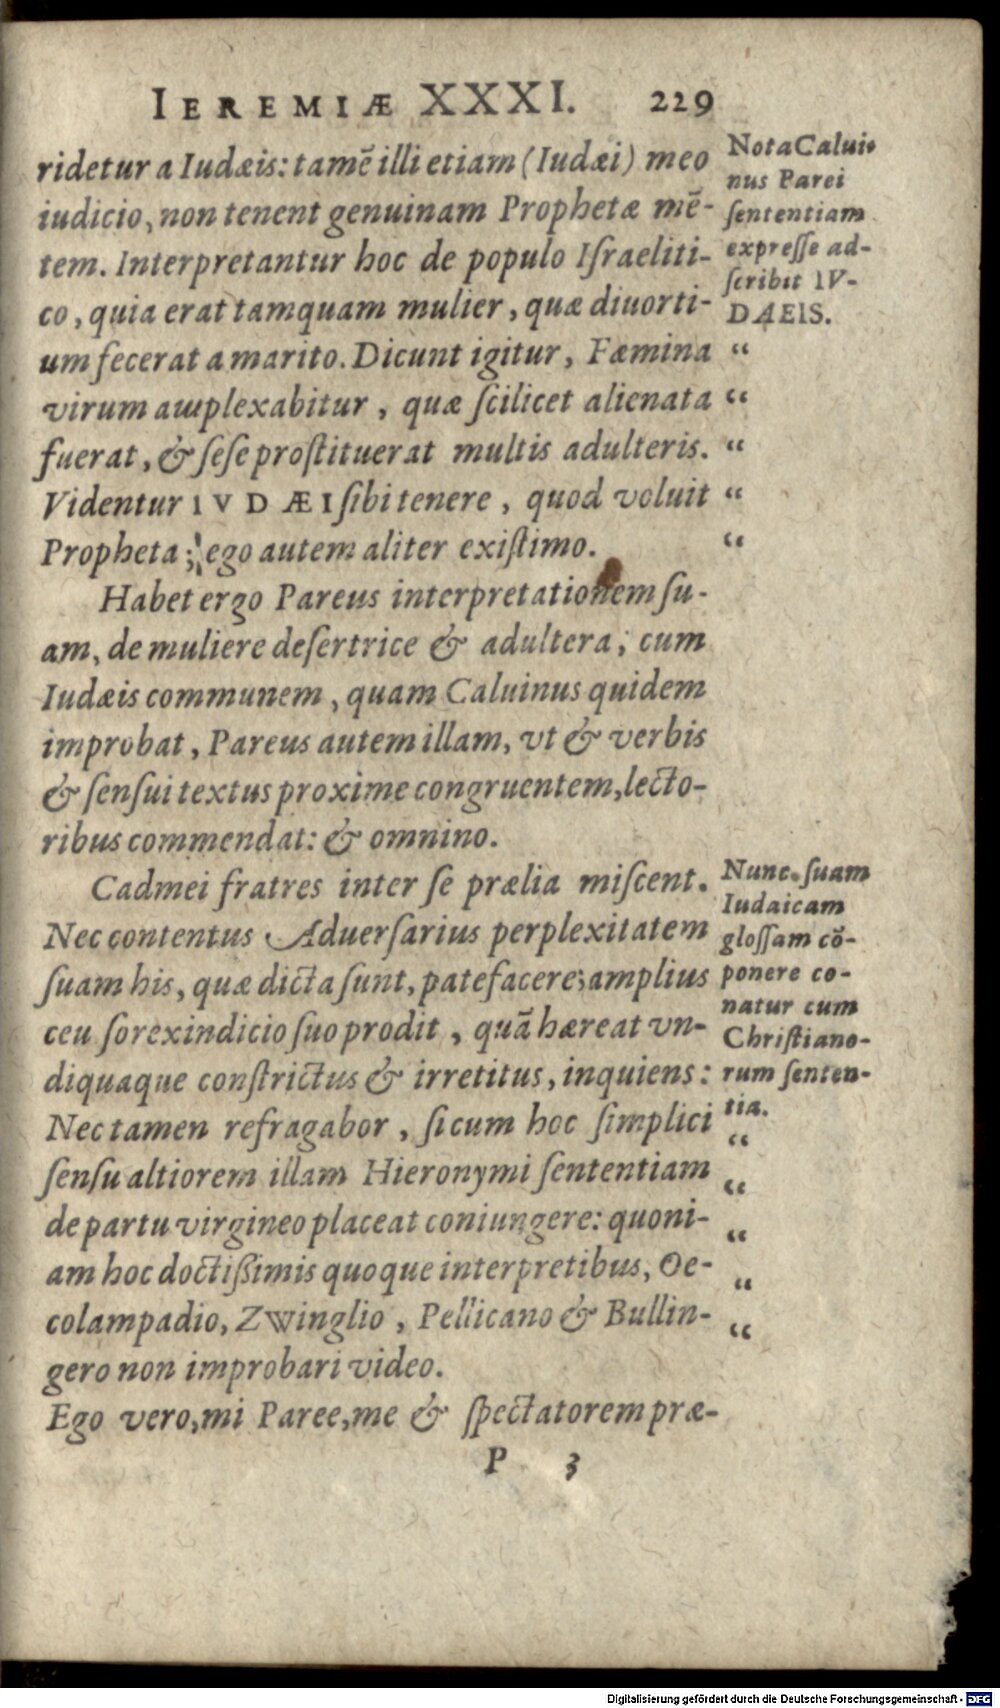 IEREMIÆ XXXI. 229
ridetur a Iudæis: tamē illi etiam (Iudæi) meo
iudicio, non tenent genuinam Prophetæ mē-
tem. Interpretantur hoc de populo Iſraeliti-
co, quia erat tamquam mulier, quæ diuorti-
um fecerat a marito. Dicunt igitur, Fæmina
virum amplexabitur, quæ ſcilicet alienata
fuerat, & ſeſe proſtituerat multis adulteris.
Videntur IVDÆI ſibi tenere, quod voluit
Propheta; ego autem aliter exiſtimo.
Habet ergo Pareus interpretationem ſu-
am, de muliere deſertrice & adultera; cum
Iudæis communem, quam Caluinus quidem
improbat, Pareus autem illam, vt & verbis
& ſenſui textus proxime congruentem, lecto-
ribus commendat: & omnino.
Cadmei fratres inter ſe prælia miſcent.
Nec contentus Aduerſarius perplexitatem
ſuam his, quæ dicta ſunt, patefacere; amplius
ceu ſorex indicio ſuo prodit, quā hæreat vn-
diquaque conſtrictus & irretitus, inquiens:
Nec tamen refragabor, ſi cum hoc ſimplici
ſenſu altiorem illam Hieronymi ſententiam
de partu virgineo placeat coniungere: quoni-
am hoc doctißimis quoque interpretibus, Oe-
colampadio, Zwinglio, Pellicano & Bullin-
gero non improbari video.
Ego vero, mi Paree, me & ſpectatorem præ-
P 3
Nota Calui-
nus Parei
ſententiam
expreſſe ad-
ſcribit IV-
DAEIS.
“
“
“
“
“
Nunc ſuam
Iudaicam
gloſſam cō-
ponere co-
natur cum
Chriſtiano-
rum ſenten-
tia.
“
“
“
“
“
Digitalisierung gefördert durch die Deutsche Forschungsgemeinschaft - DFG